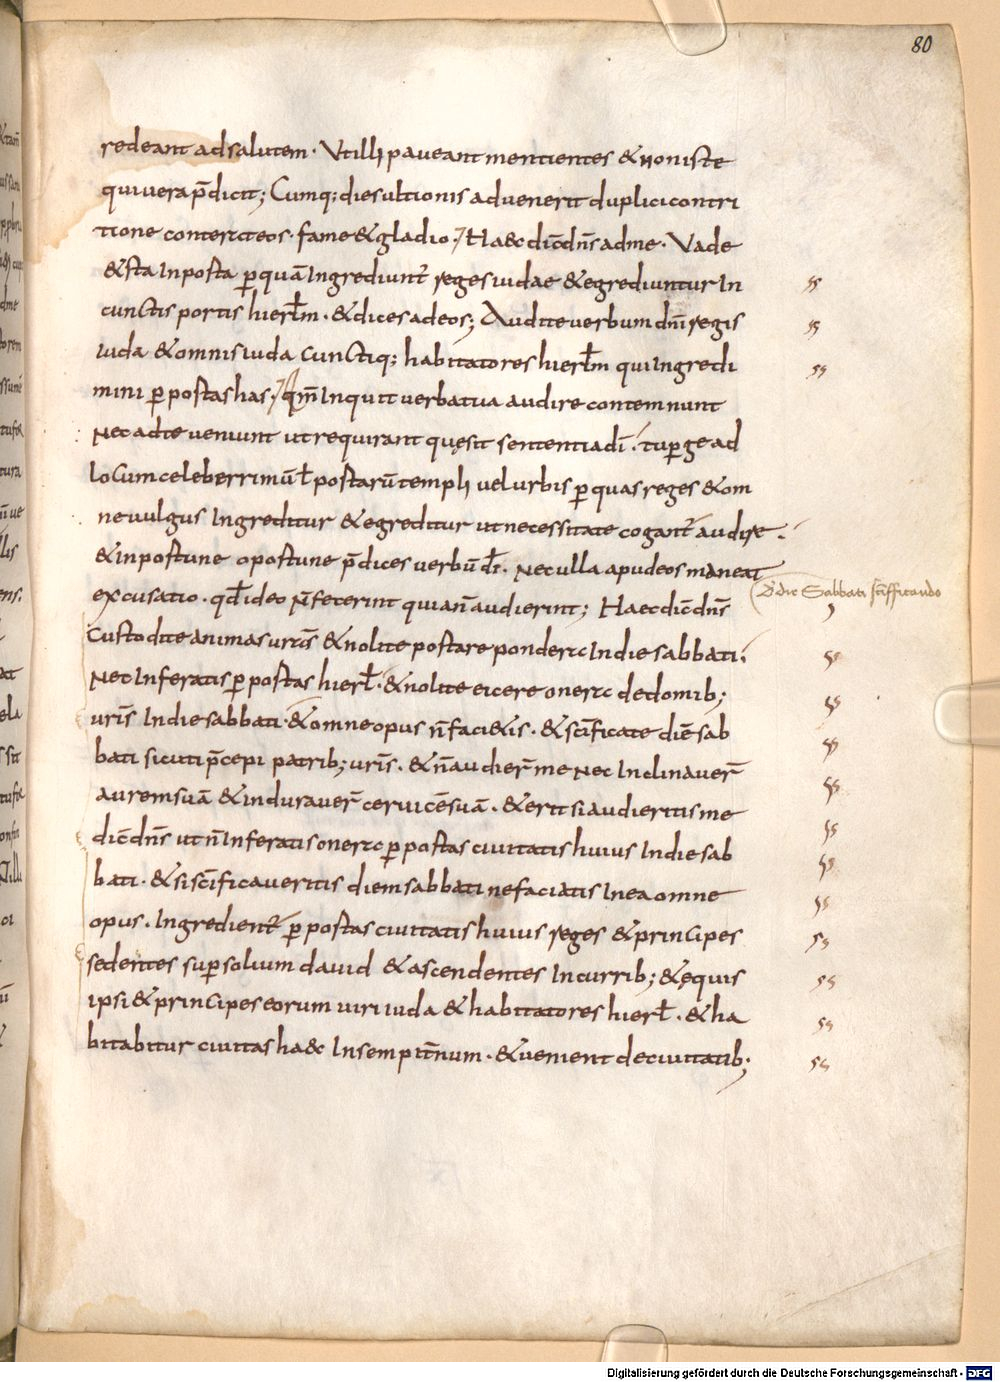 80
redeant ad salutem. Ut illi paveant mentientes & non iste
qui vera p̄dicit; Cumq; dies ultionis advenerit duplici contri
tione conterc teos. fame & gladio. Haec dic̄ dn̄s ad me. Vade
& sta In porta ꝑ quā Ingrediunt̄ reges iudae & egrediuntur In
cunctis portis hierłm. & dices ad eos; Audite verbum dn̄i regis
iuda & omnis iuda Cunctiq; habitatores hierłm qui Ingredi
mini ꝑ portas has. Qm̄ Inquit verba tua audire contemnunt
Nec ad te veniunt ut requirant quę sit sententia dī. tu ꝑge ad
locum celeberrimū ł portarū templi vel urbis ꝑ quas reges & om
ne vulgus Ingreditur & egreditur ut necessitate cogant̄ audire.
& inportune oportune p̄dices verbū dī. Nec ulla apud eos maneat
excusatio. qđ ideo n̄ fecerint quia n̄ audierint; Haec dic̄ dn̄s
De die Sabbati sc̄ificando
Custodite animas ur̄as & nolite portare pondera In die sabbati.
Nec Inferatis ꝑ portas hierł. & nolite eicere onera de domib;
ur̄is In die sabbati. & omne opus n̄ faci&is. & sc̄ificate diē sab
bati sicuti p̄cepi patrib; ur̄is. & n̄ audier̄ me Nec Inclinaver̄
aurem suā & induraver̄ cervicē suā. & erit si audieritis me
dic̄ dn̄s ut n̄ Inferatis onera ꝑ portas civitatis huius In die sab
bati. & si sc̄ificaveritis diem sabbati ne faciatis In ea omne
opus. Ingredient̄ ꝑ portas civitatis huius reges & principes
sedentes suꝑ solium david & ascendentes In currib; & equis
ipsi & principes eorum viri iuda & habitatores hierł. & ha
bitabitur civitas haec In sempit̄num. & venient de civitatib;
Digitalisierung gefördert durch die Deutsche Forschungsgemeinschaft - DFG